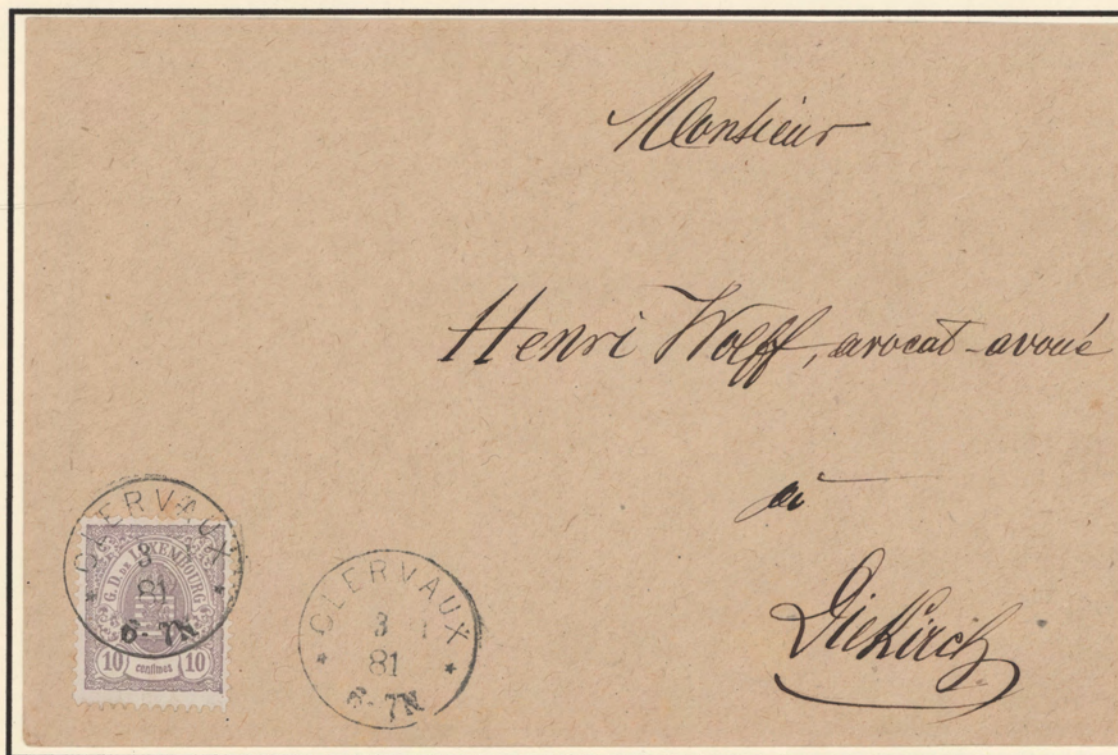 Monsieur
Henri Wolff, avocat-avoué
à
Diekirch
CLERVAUX
3
81
6-7N
G. D. DE LUXEMBOURG
10 centimes 10
CLERVAUX
3
81
6-7N